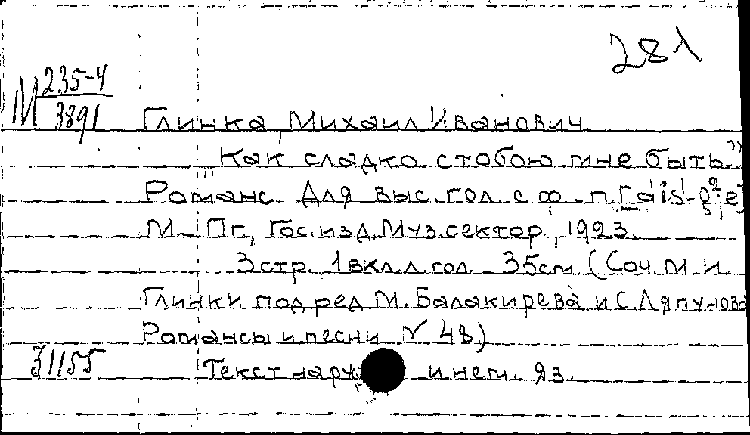 281
М 235-4
3891
Глинка, Михаил Иванович
"Как сладко с тобою мне быть"
Романс. Для выс. гол. с ф.-п.
М.-Пг., Гос. изд. Муз. сектор, 1923.
3 стр. 1 вкл. л. гол. 35 см (Соч. М. И.
Глинки под ред. М. Балакирева и С. Ляпунова
Романсы и песни № 48)
31155
Текст на ру и нем. яз.